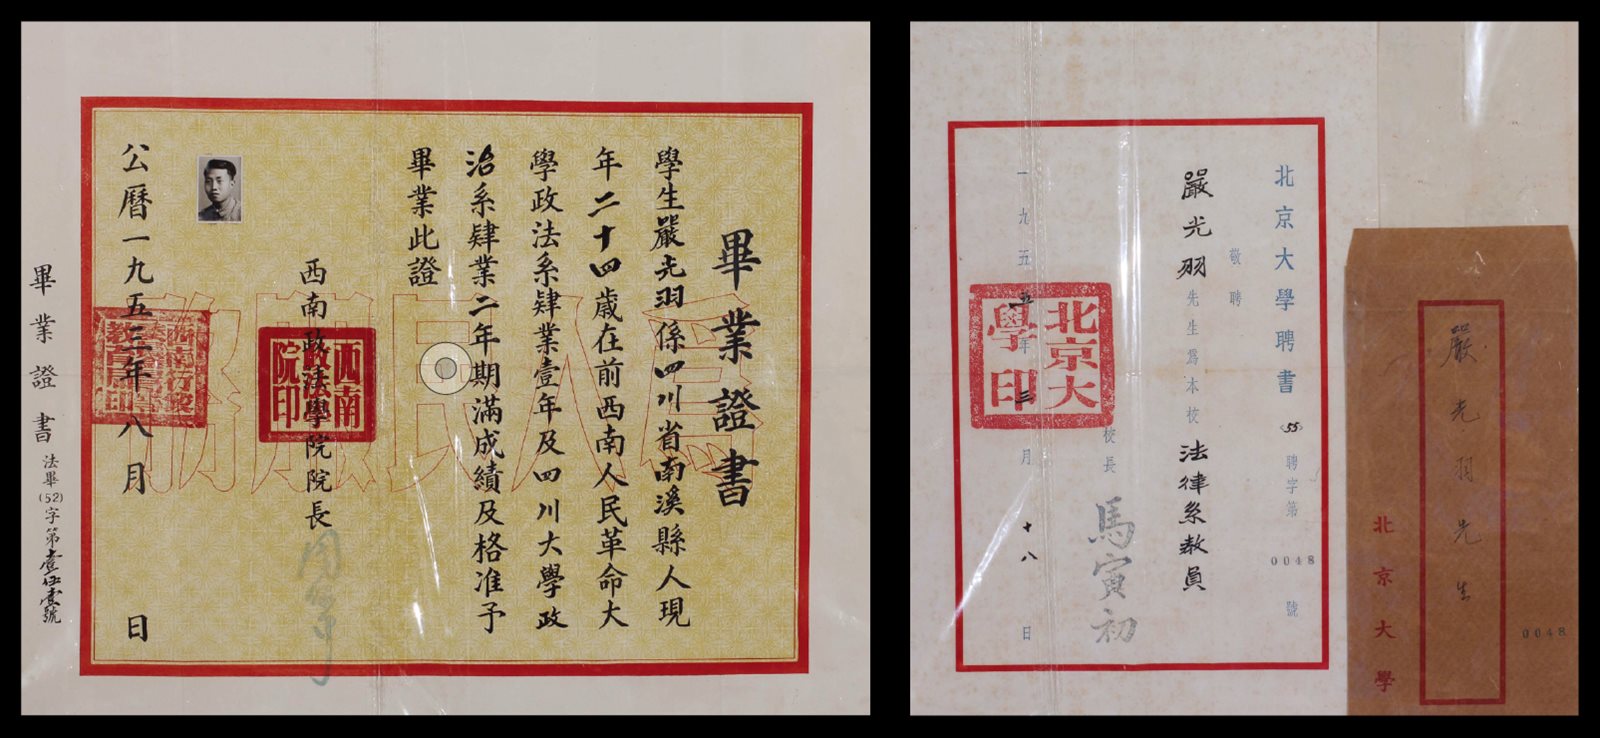 畢業證書
學生嚴光羽係四川省南溪縣人現
年二十四歲在前西南人民革命大
學政法系肄業壹年及四川大學政
治系肄業二年期滿成績及格准予
畢業此證
西南政法學院院長
公曆一九五三年八月 日
畢業證書 法畢(52)字第壹伍壹號
為人民服務
西南政法學院印
北京大學聘書 (55)聘字第0048號
敬聘
嚴光羽先生為本校法律系教員
校長 馬寅初
一九五五年三月十八日
北京大學印
嚴光羽先生
北京大學
0048